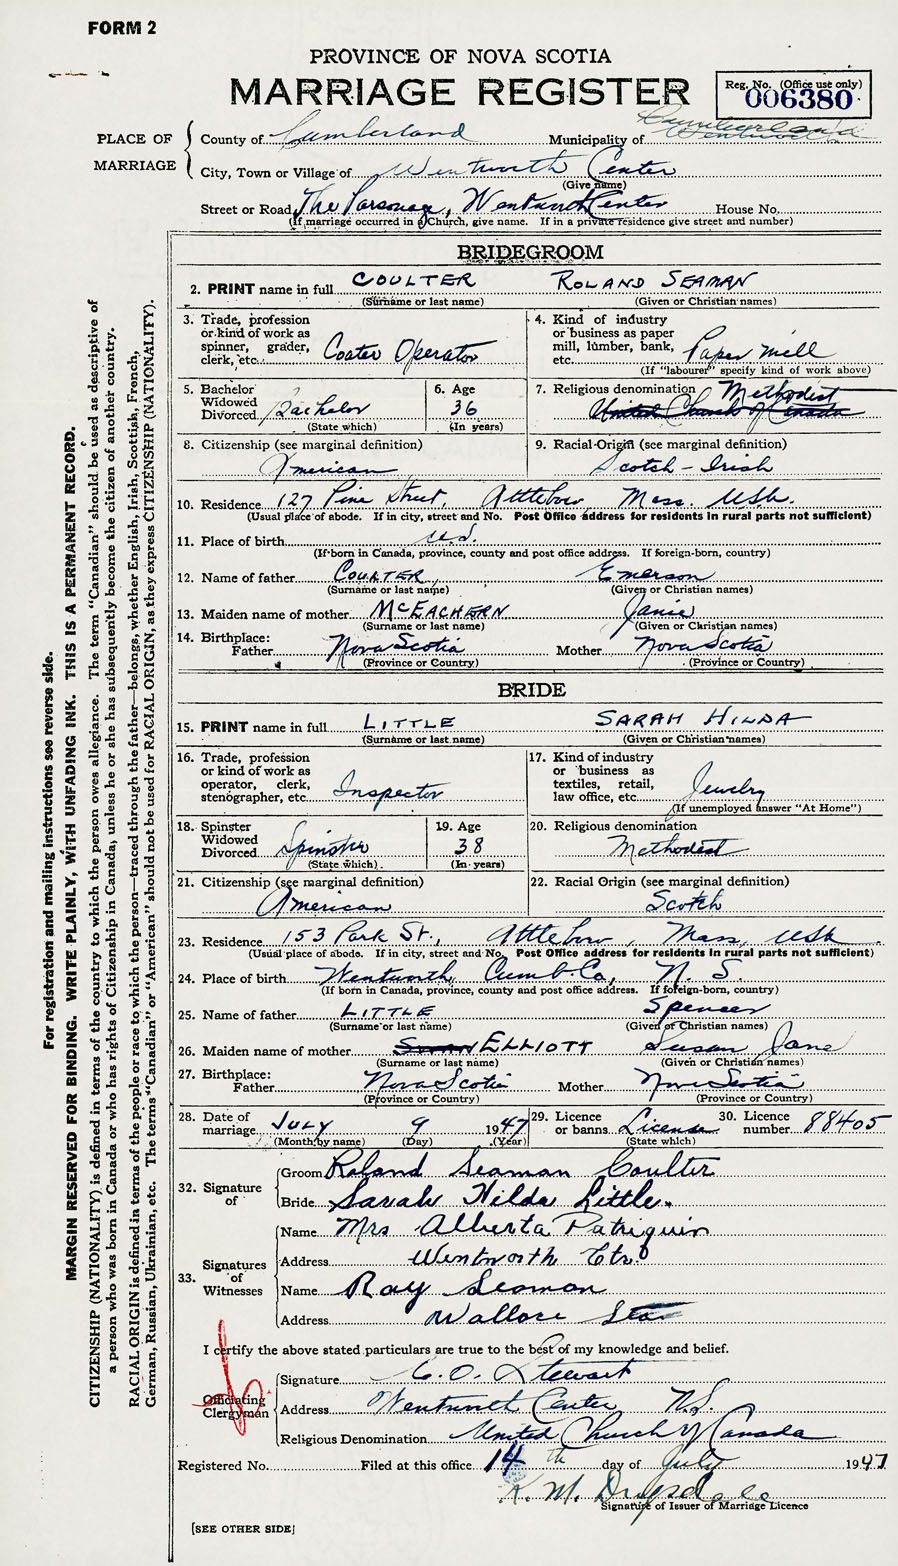 FORM 2
PROVINCE OF NOVA SCOTIA
MARRIAGE REGISTER
Reg. No. (Office use only)
006380
PLACE OF MARRIAGE
County of Cumberland Municipality of Cumberland
City, Town or Village of Wentworth Center
(Give name)
Street or Road The Parsonage, Wentworth Center House No.
(If marriage occurred in a Church, give name. If in a private residence give street and number)
BRIDEGROOM
2. PRINT name in full COULTER ROLAND SEAMAN
(Surname or last name) (Given or Christian names)
3. Trade, profession or kind of work as spinner, grader, clerk, etc. Coater Operator
4. Kind of industry or business as paper mill, lumber, bank, etc. Paper Mill
(If "labourer" specify kind of work above)
5. Bachelor Widowed Divorced Bachelor
(State which)
6. Age 36
(In years)
7. Religious denomination Methodist
United Church of Canada
8. Citizenship (see marginal definition)
American
9. Racial Origin (see marginal definition)
Scotch - Irish
10. Residence 127 Pine Street, Attleboro Mass. USA.
(Usual place of abode. If in city, street and No. Post Office address for residents in rural parts not sufficient)
11. Place of birth U.S.
(If born in Canada, province, county and post office address. If foreign-born, country)
12. Name of father COULTER, Emerson
(Surname or last name) (Given or Christian names)
13. Maiden name of mother MCEACHERN Janie
(Surname or last name) (Given or Christian names)
14. Birthplace:
Father Nova Scotia Mother Nova Scotia
(Province or Country) (Province or Country)
BRIDE
15. PRINT name in full LITTLE SARAH HILDA
(Surname or last name) (Given or Christian names)
16. Trade, profession or kind of work as operator, clerk, stenographer, etc. Inspector
17. Kind of industry or business as textiles, retail, law office, etc. Jewelry
(If unemployed answer "At Home")
18. Spinster Widowed Divorced Spinster
(State which)
19. Age 38
(In years)
20. Religious denomination
Methodist
21. Citizenship (see marginal definition)
American
22. Racial Origin (see marginal definition)
Scotch
23. Residence 153 Park St., Attleboro, Mass, USA
(Usual place of abode. If in city, street and No. Post Office address for residents in rural parts not sufficient)
24. Place of birth Wentworth Cumb. Co, N. S.
(If born in Canada, province, county and post office address. If foreign-born, country)
25. Name of father LITTLE Spencer
(Surname or last name) (Given or Christian names)
26. Maiden name of mother ELLIOTT Susan Jane
(Surname or last name) (Given or Christian names)
27. Birthplace:
Father Nova Scotia Mother Nova Scotia
(Province or Country) (Province or Country)
28. Date of marriage JULY 9 1947
(Month by name) (Day) (Year)
29. Licence or banns License
(State which)
30. Licence number 88405
32. Signature of
Groom Roland Seaman Coulter
Bride Sarah Hilda Little.
33. Signatures of Witnesses
Name Mrs Alberta Patriquin
Address Wentworth Ctr.
Name Ray Seaman
Address Wallace
I certify the above stated particulars are true to the best of my knowledge and belief.
Officiating Clergyman
Signature C. O. Stewart
Address Wentworth Center N.S.
Religious Denomination United Church of Canada
Registered No. Filed at this office 14th day of July 1947
K. M. Drysdale
Signature of Issuer of Marriage Licence
[SEE OTHER SIDE]
For registration and mailing instructions see reverse side.
MARGIN RESERVED FOR BINDING. WRITE PLAINLY, WITH UNFADING INK. THIS IS A PERMANENT RECORD.
CITIZENSHIP (NATIONALITY) is defined in terms of the country to which the person owes allegiance. The term "Canadian" should be used as descriptive of
a person who was born in Canada or who has rights of Citizenship in Canada, unless he or she has subsequently become the citizen of another country.
RACIAL ORIGIN is defined in terms of the people or race to which the person—traced through the father—belongs, whether English, Irish, Scottish, French,
German, Russian, Ukrainian, etc. The terms "Canadian" or "American" should not be used for RACIAL ORIGIN, as they express CITIZENSHIP (NATIONALITY).